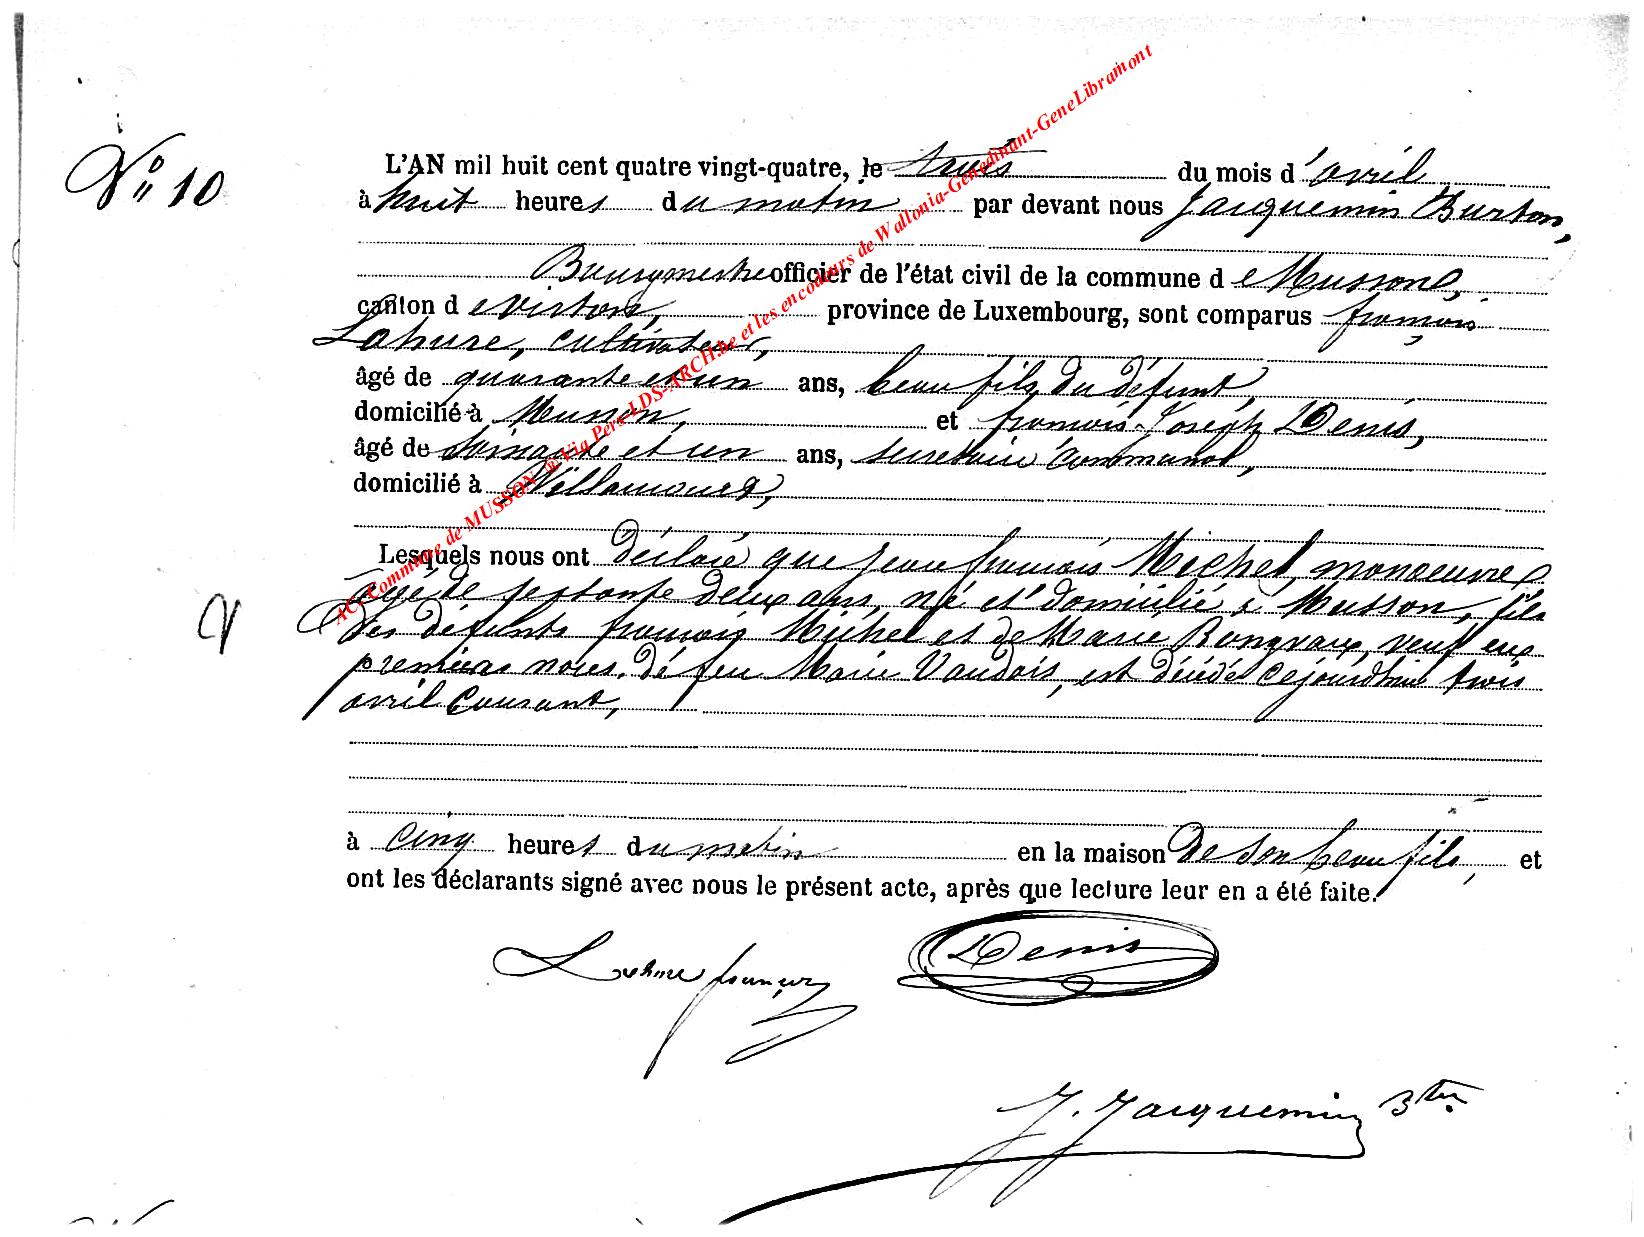 N° 10
L'AN mil huit cent quatre vingt-quatre, le trois du mois d'avril
à huit heures du matin par devant nous Jacquemin Burton,
Bourgmestre officier de l'état civil de la commune de Musson,
canton de Virton, province de Luxembourg, sont comparus françois
Lahure, cultivateur,
âgé de quarante et un ans, beau fils du défunt,
domicilié à Musson, et françois Joseph Denis,
âgé de soixante et un ans, secrétaire communal,
domicilié à Willancourt,
Lesquels nous ont déclaré que Jean françois Michel, manoeuvre
âgé de septante deux ans, né et domicilié à Musson, fils
des défunts françois Michel et de Marie Rongvaux, veuf en
premières noces de feu Marie Vaudois, est décédé cejourd'hui trois
avril courant,
à cinq heures du matin en la maison de son beau fils, et
ont les déclarants signé avec nous le présent acte, après que lecture leur en a été faite.
Lahure françois Denis
J. Jacquemin Btn
AC. Commune de MUSSON ® Via Pers-LDS-ARCH.be et les encodeurs de Wallonia-Genedinant-GeneLibramont